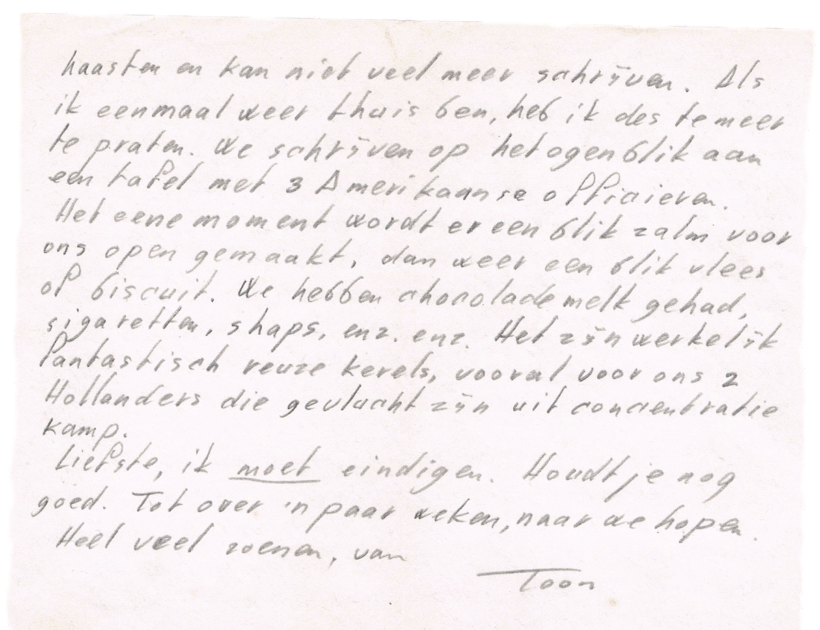 haasten en kan niet veel meer schrijven. Als
ik eenmaal weer thuis ben, heb ik des te meer
te praten. We schrijven op het ogenblik aan
een tafel met 3 Amerikaanse officieren.
Het eene moment wordt er een blik zalm voor
ons open gemaakt, dan weer een blik vlees
of biscuit. We hebben chocolademelk gehad,
sigaretten, shaps, enz. enz. Het zijn werkelijk
fantastisch reuze kerels, vooral voor ons 2
Hollanders die gevlucht zijn uit concentratie
kamp.
Liefste, ik moet eindigen. Houdt je nog
goed. Tot over 'n paar weken, naar we hopen.
Heel veel zoenen, van
Toon